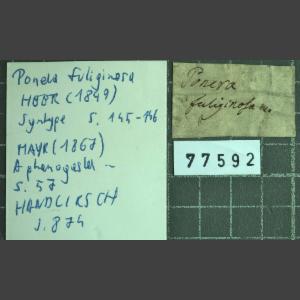 Ponera fuliginosa
HEER (1849)
Syntype S. 145-146
MAYR (1867)
Aphenogaster -
S. 57
HANDLIRSCH
S. 874
Ponera
fuliginosa m.
77592